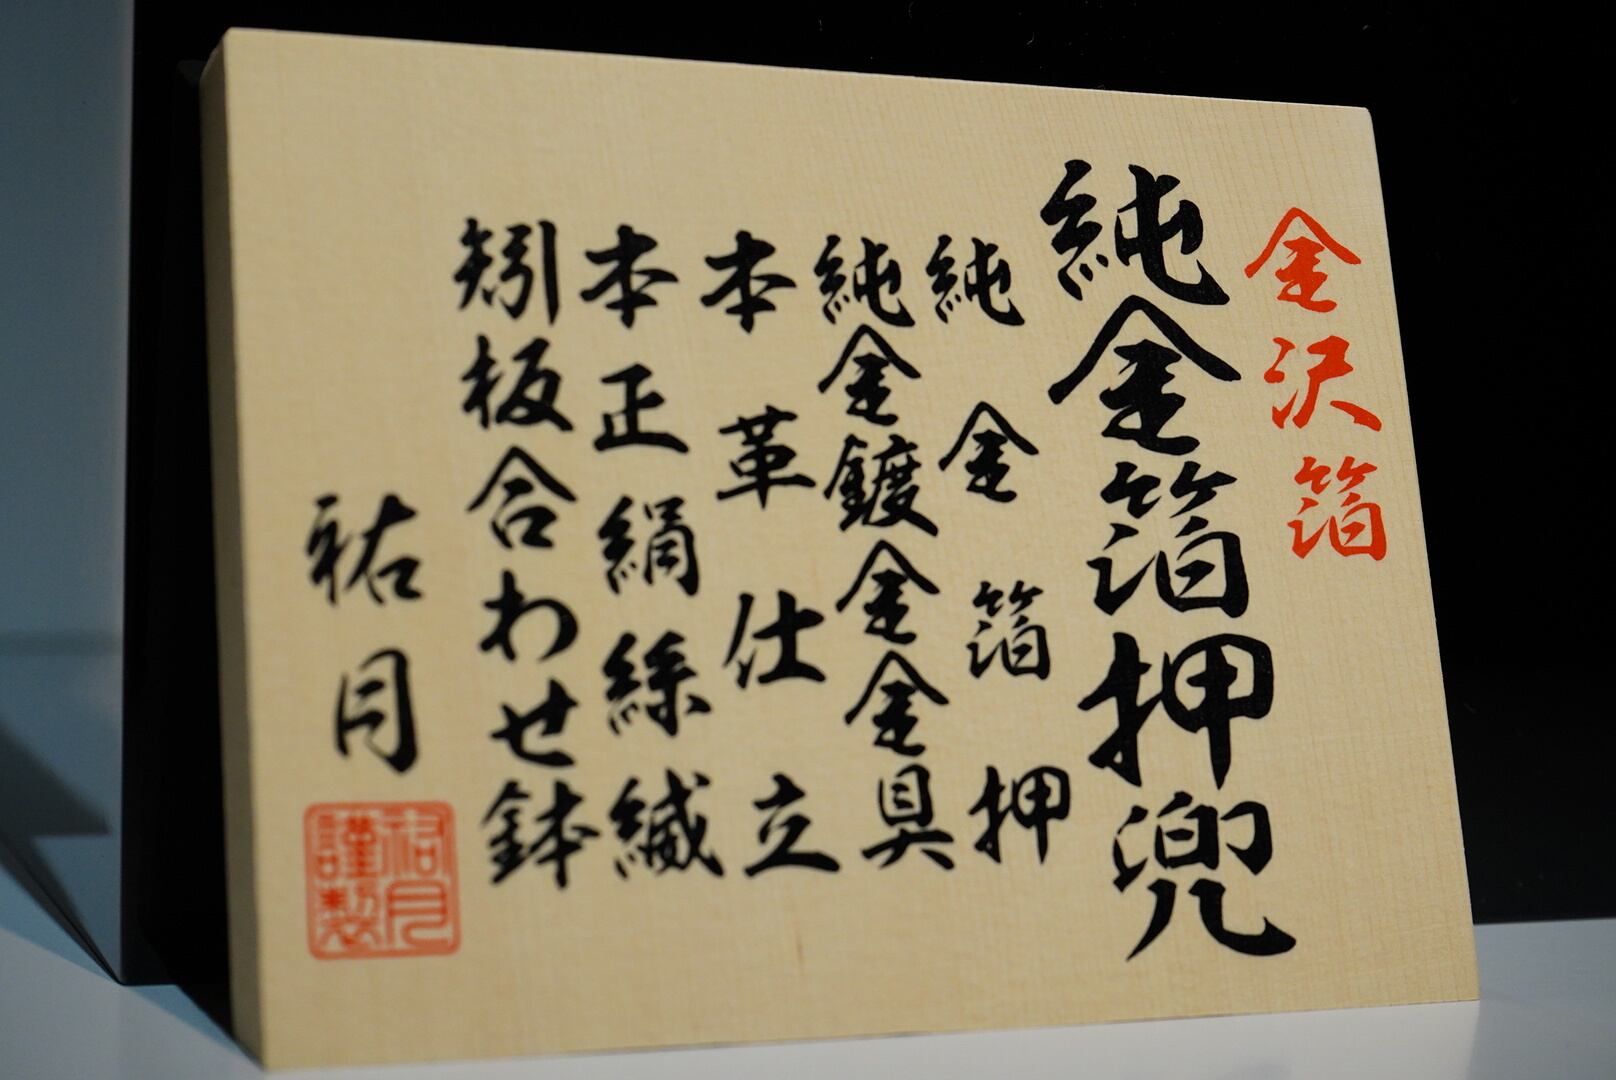 金沢箔
純金箔押兜
純金箔押
純金鍍金金具
本革仕立
本正絹絲縅
矧板合わせ鉢
祐月
祐月謹製